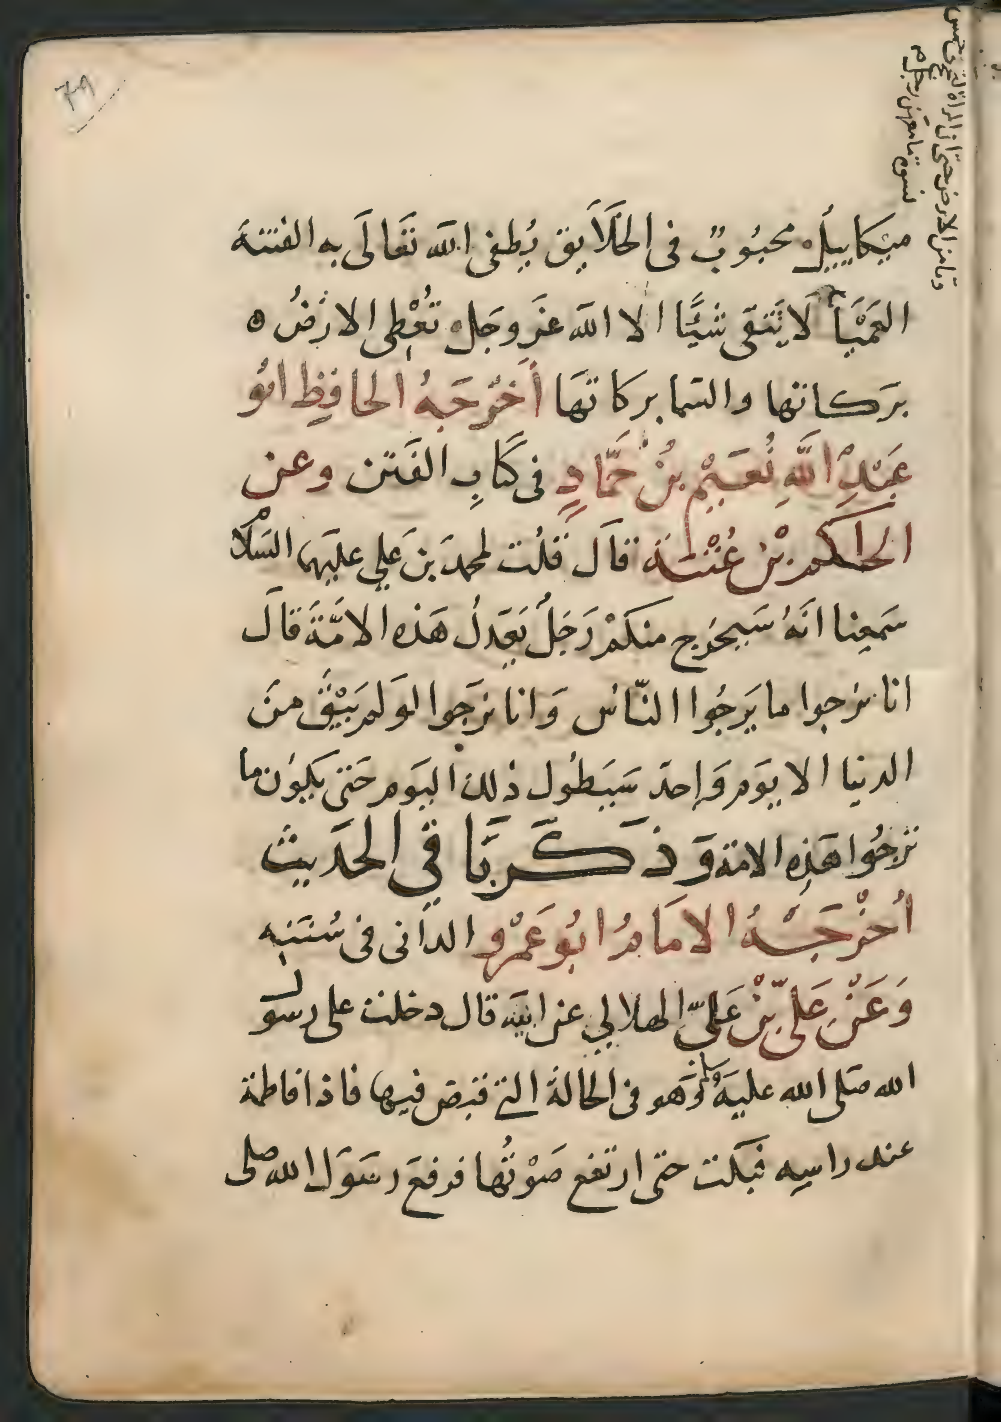 ٧٩
وتامن الارض حتى ان المراة لتحج في خمس
نسوة ما معهن رجل
ميكاييل محبوب في الخلايق يطفي الله تعالى به الفتنة
العميا لا يتقى شيا الا الله عز وجل تعطى الارض
بركاتها والسما بركاتها أخرجه الحافظ ابو
عبد الله نعيم بن حماد في كتاب الفتن وعن
الحاكم بن عتيبة قال قلت لمحمد بن علي عليهما السلا
سمعنا انه سيخرج منكم رجل يعدل هذه الامة قال
انا نرجوا ما يرجوا الناس وانا نرجوا لو لم يبق من
الدنيا الا يوم واحد سيطول ذلك اليوم حتى يكون ما
نرجوا هذه الامة وذكر باقي الحديث
أخرجه الامام ابو عمرو الداني في سننه
وعن علي بن علي الهلالي عن ابيه قال دخلت على رسول
الله صلى الله عليه وسلم وهو في الحالة التي قبض فيها فاذا فاطمة
عند راسه فبكت حتى ارتفع صوتها فرفع رسول الله صلى